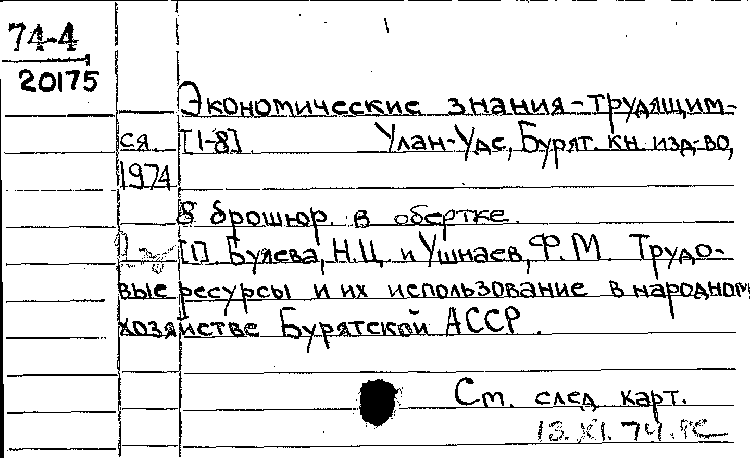 74-4
20175
Экономические знания - трудящим-
ся. [1-8]. Улан-Удэ, Бурят. кн. изд-во,
1974
8 брошюр. в обертке.
[1]. Буяева, Н.Ц. и Ушнаев, Ф.М. Трудо-
вые ресурсы и их использование в народном
хозяйстве Бурятской АССР.
См. след. карт.
13.XI.74.